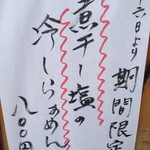 六日より
期間限定
煮干し塩の
冷しらぁめん
八〇〇円